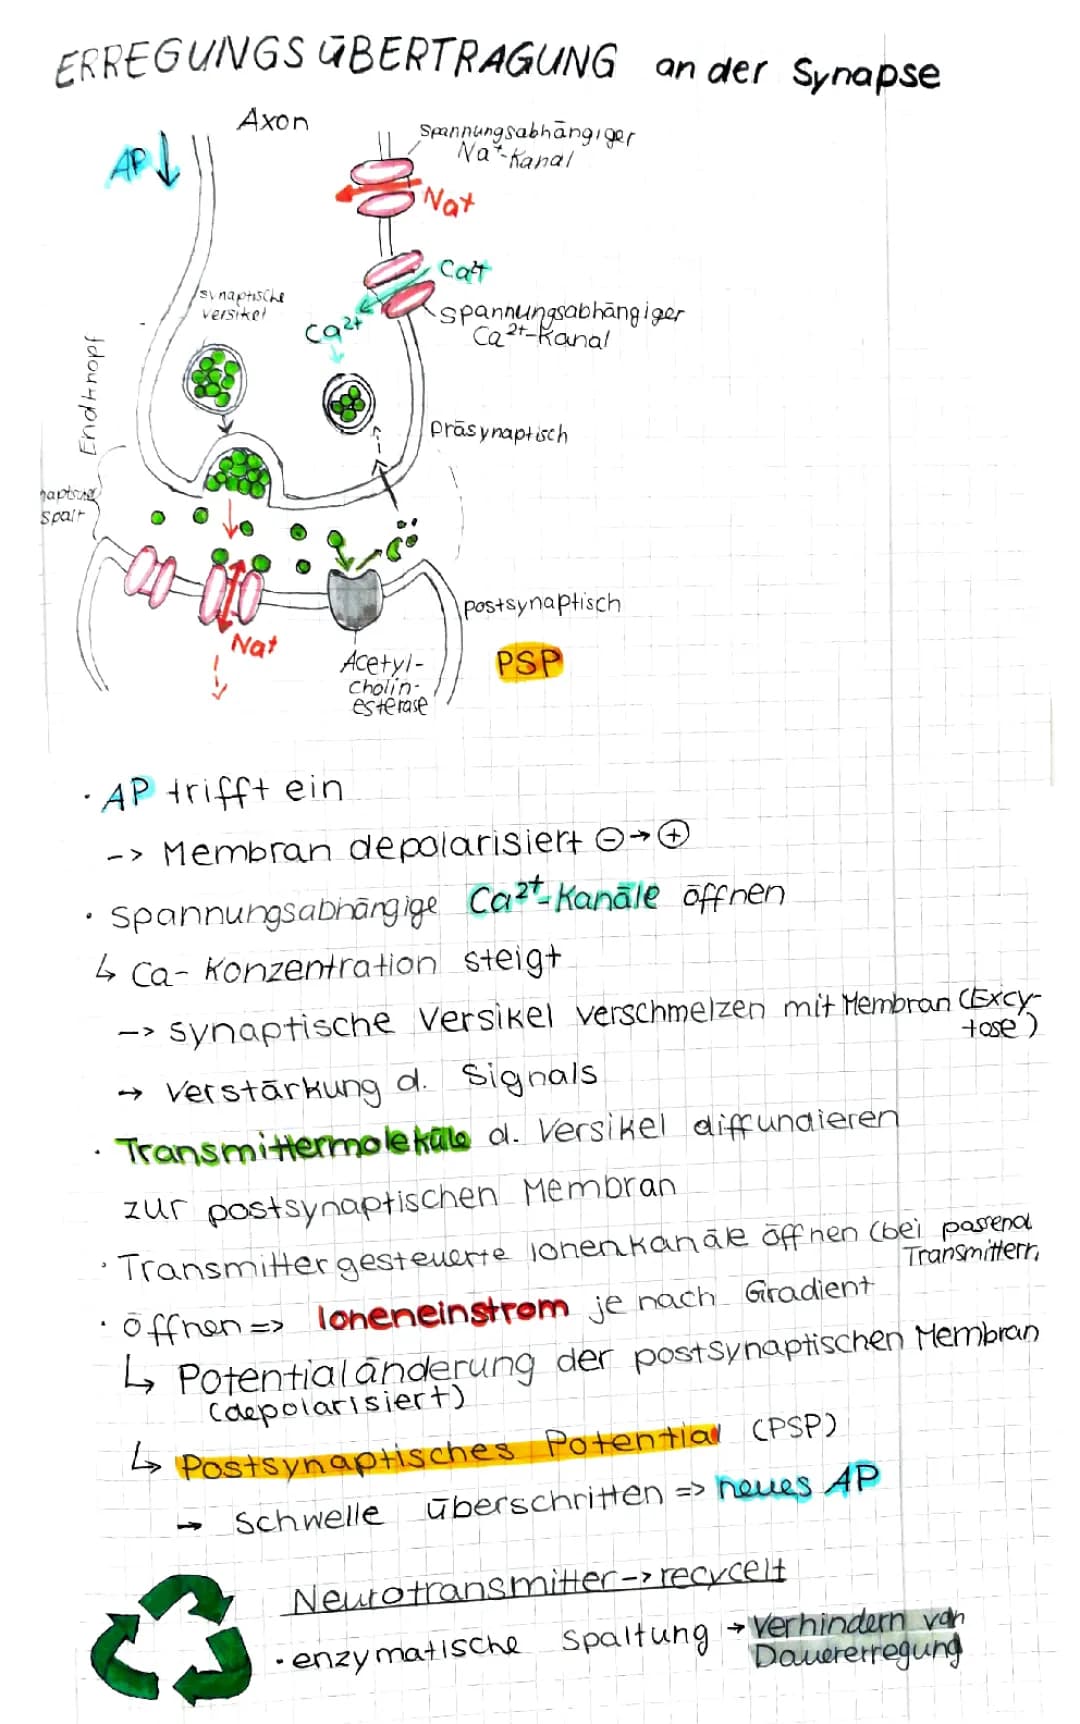 ERREGUNGSÜBERTRAGUNG an der Synapse
Axon
AP↓
spannungsabhängiger
Na⁺-Kanal
Na⁺
Ca²⁺
spannungsabhängiger
Ca²⁺-Kanal
synaptische
versikel
Ca²⁺
Endknopf
präsynaptisch
spalt
postsynaptisch
Na⁺
PSP
Acetyl-
cholin-
esterase
· AP trifft ein
-> Membran depolarisiert ⊖→⊕
· spannungsabhängige Ca²⁺-Kanäle öffnen
↳ Ca-Konzentration steigt
-> synaptische Versikel verschmelzen mit Membran (Excy-
tose)
→ Verstärkung d. Signals
· Transmittermoleküle d. Versikel diffundieren
zur postsynaptischen Membran
· Transmittergesteuerte Ionenkanäle öffnen (bei passend
Transmittern)
· öffnen => Ioneneinstrom je nach Gradient
↳ Potentialänderung der postsynaptischen Membran
(depolarisiert)
↳ Postsynaptisches Potential (PSP)
→ Schwelle überschritten => neues AP
Neurotransmitter -> recycelt
· enzymatische Spaltung → Verhindern von
Dauererregung